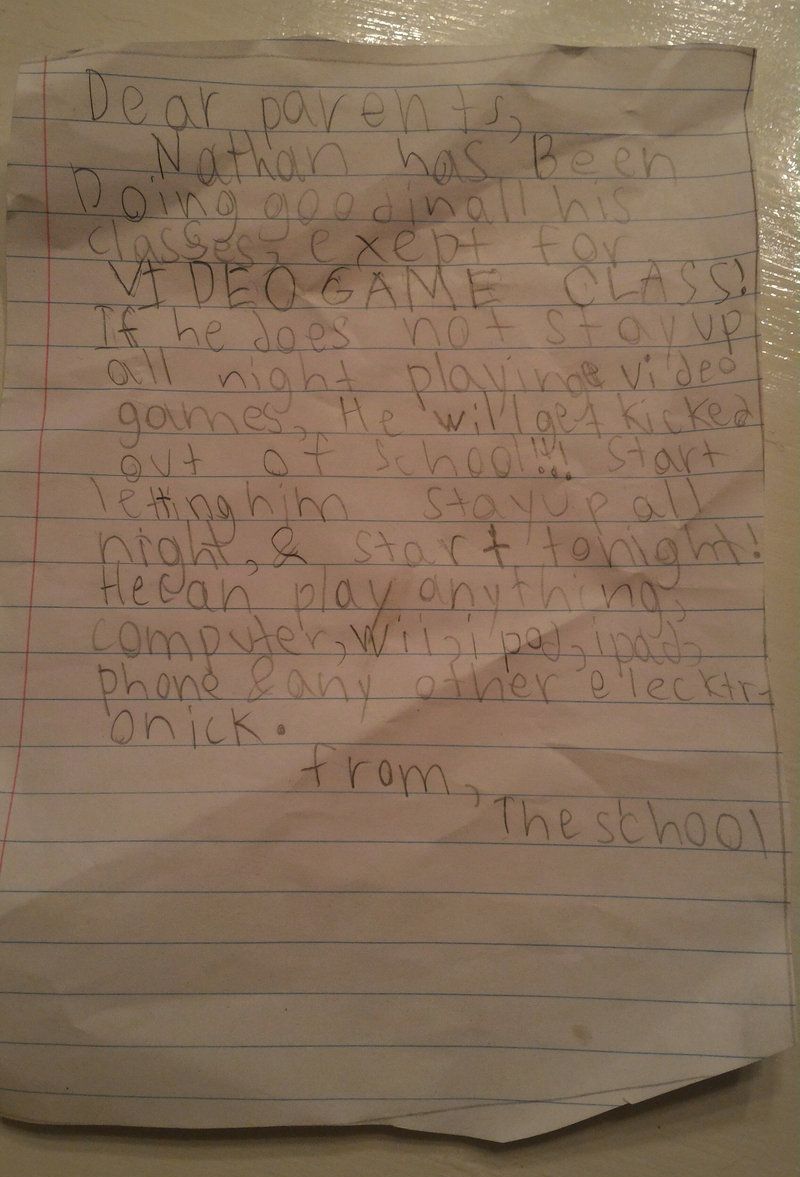 Dear parents,
Nathan has Been
Doing good in all his
classes, exept for
VIDEO GAME CLASS!
If he does not stay up
all night playing video
games, He will get kicked
out of school!!! Start
letting him stay up all
night, & start tonight!
He can play anything,
computer, Wii, i pod, ipad,
phone & any other elecktr-
onick.
from,
The school